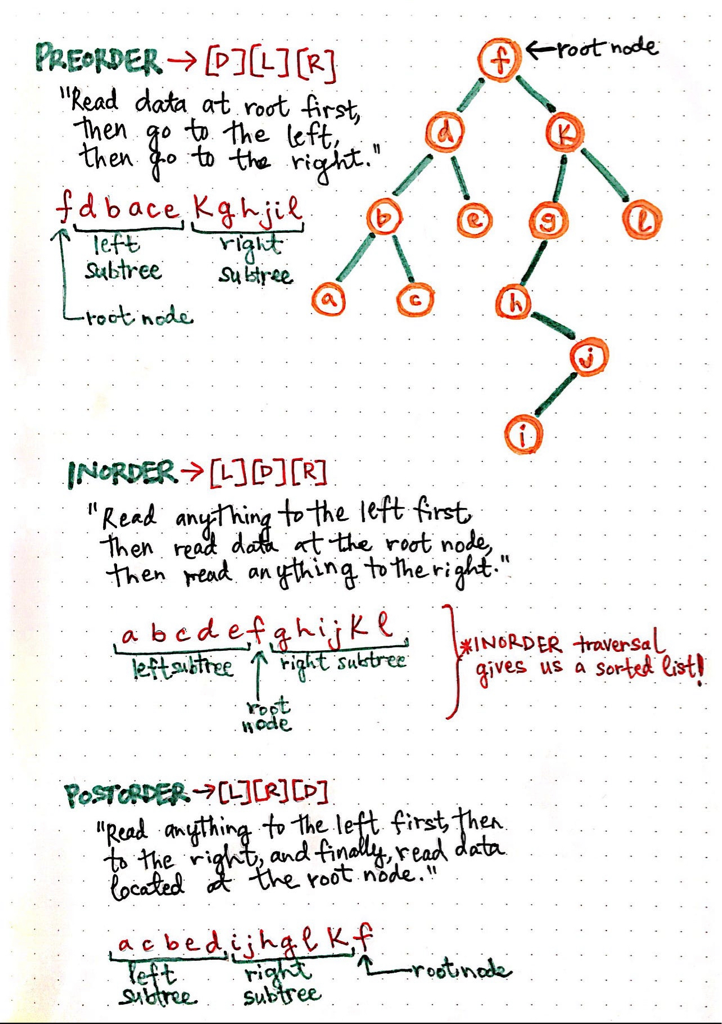 PREORDER → [D][L][R]
"Read data at root first,
then go to the left,
then go to the right."
f d b a c e K g h j i l
left
subtree
right
subtree
root node
f ← root node
d K
b e g l
a c h
j
i
INORDER → [L][D][R]
"Read anything to the left first,
then read data at the root node,
then read anything to the right."
a b c d e f g h i j K l
left subtree right subtree
root
node
*INORDER traversal
gives us a sorted list!
POSTORDER → [L][R][D]
"Read anything to the left first, then
to the right, and finally, read data
located at the root node."
a c b e d, i j h g l K, f
left
subtree
right
subtree
root node